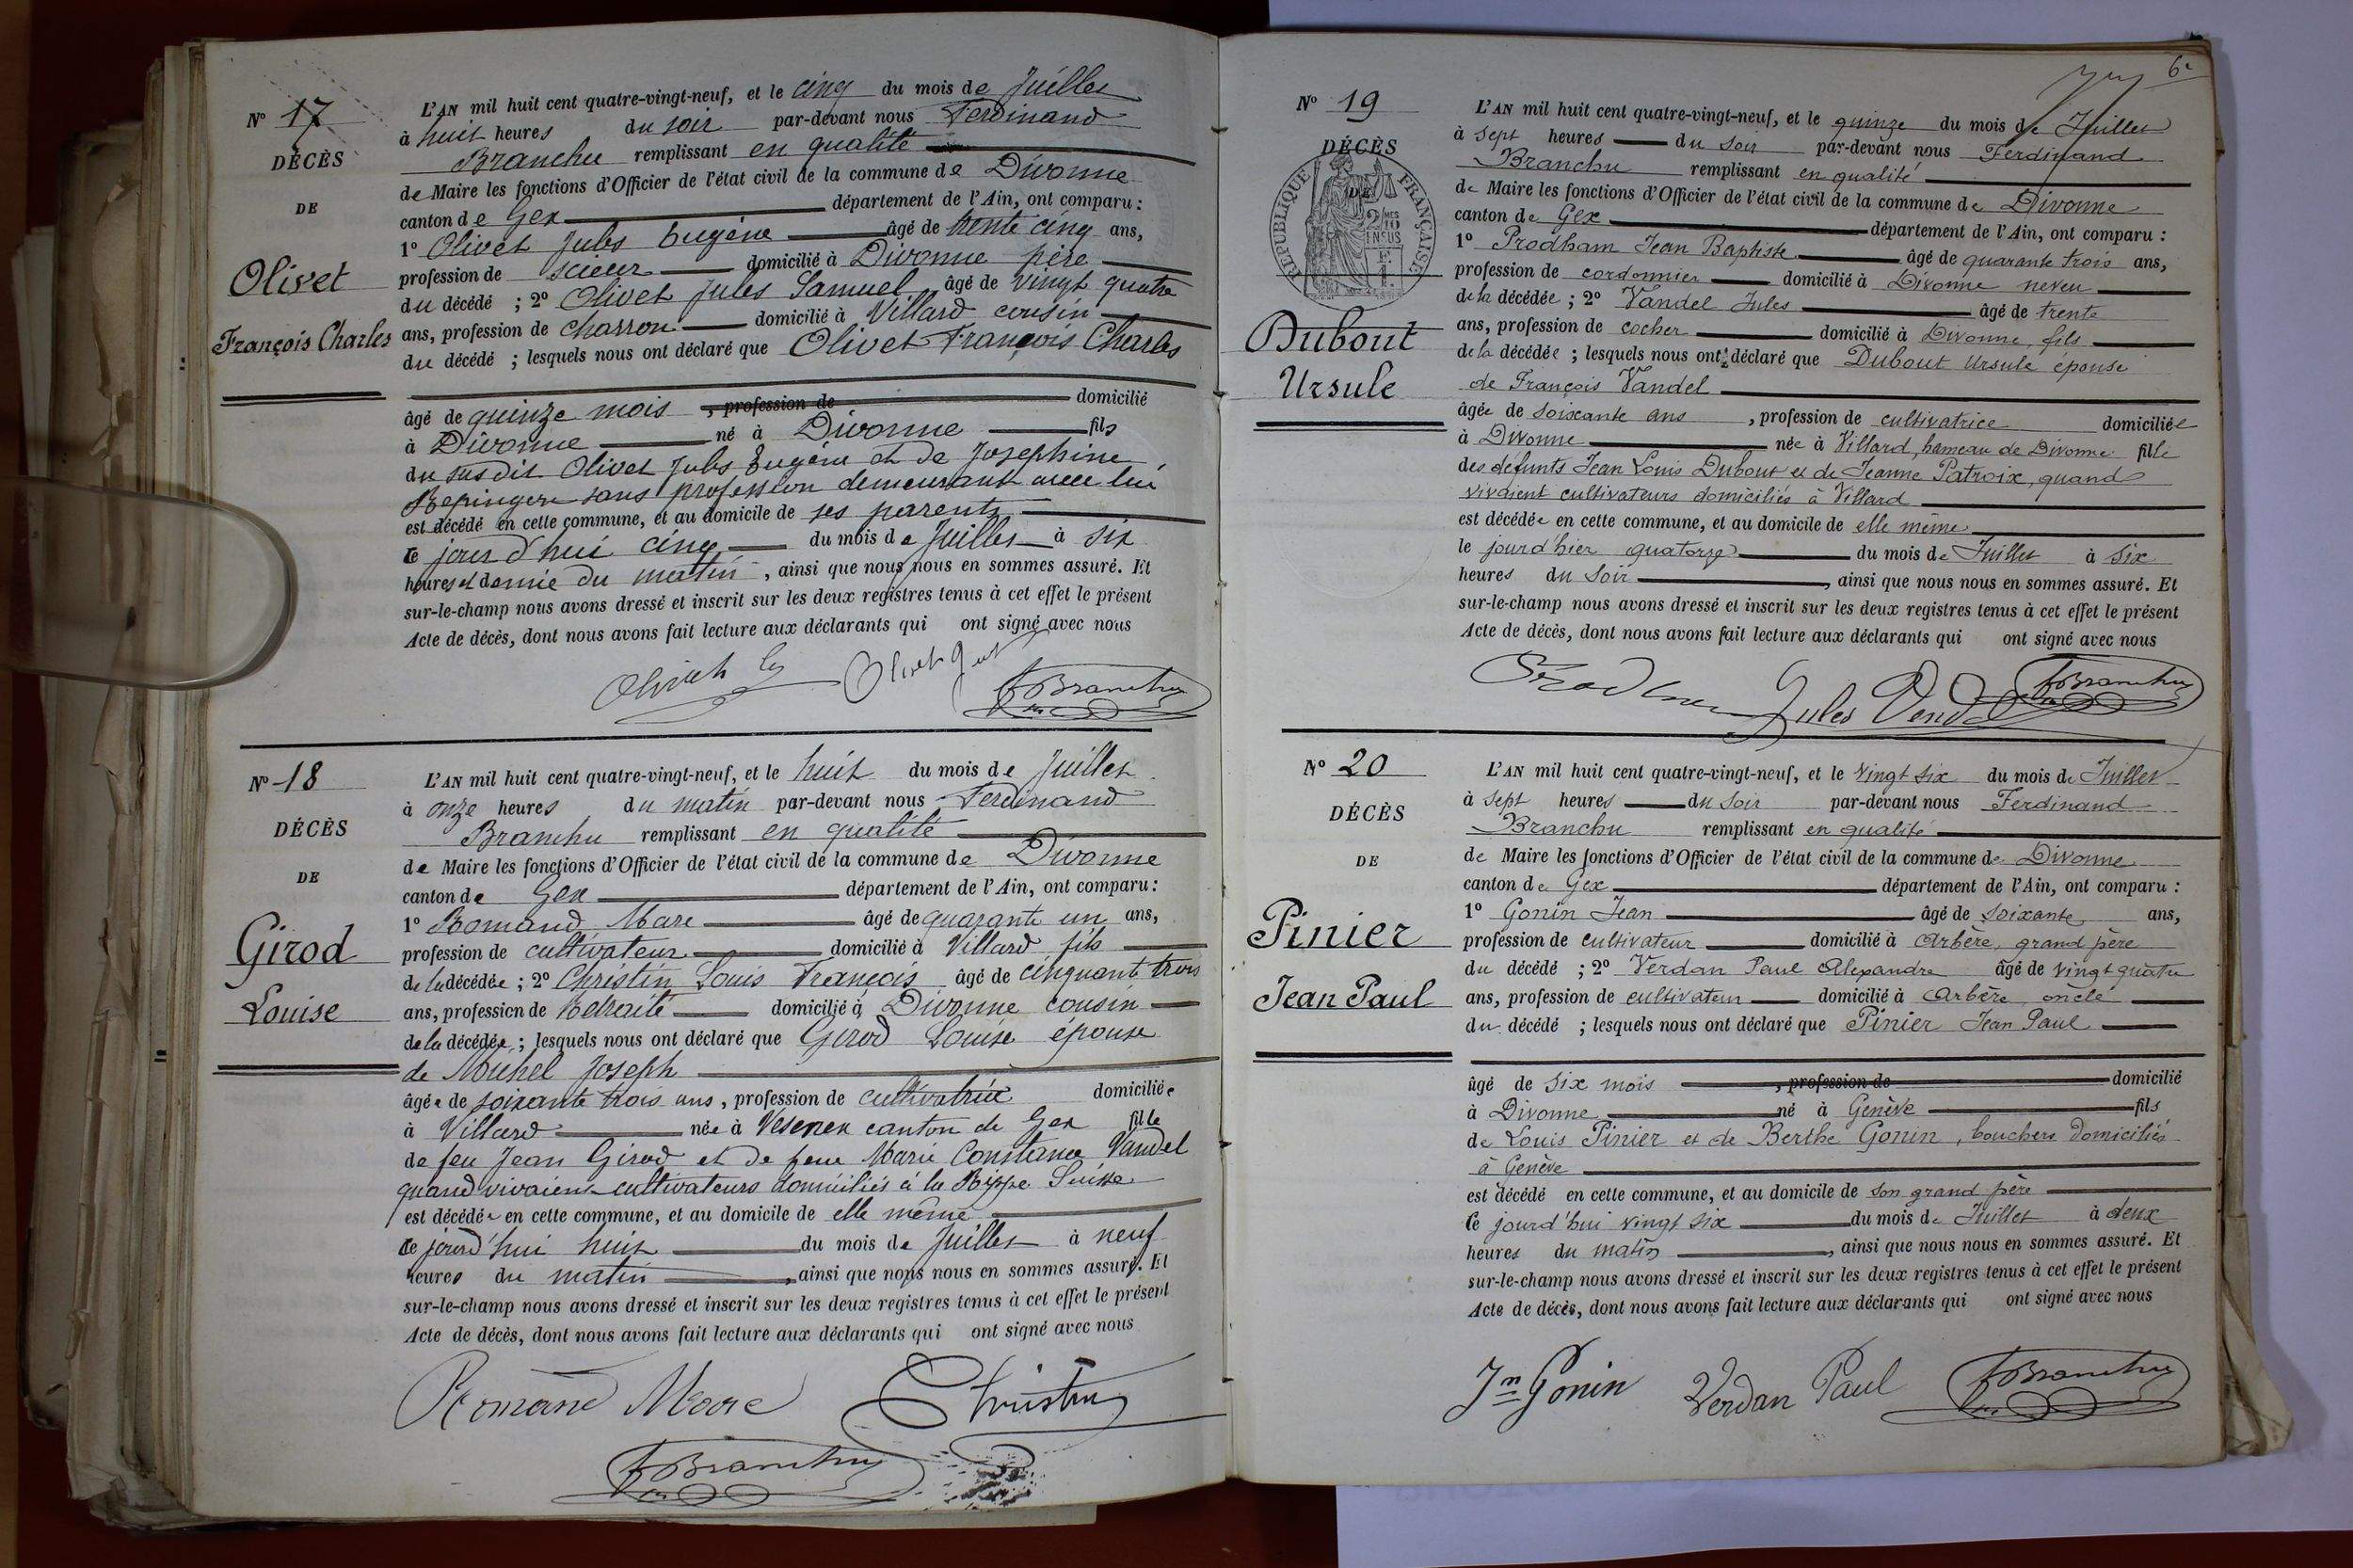 N° 17
DÉCÈS
DE
Olivet
François Charles
L'AN mil huit cent quatre-vingt-neuf, et le cinq du mois de Juillet
à huit heures du soir par-devant nous Ferdinand
Branchu remplissant en qualité
de Maire les fonctions d'Officier de l'état civil de la commune de Divonne
canton de Gex département de l'Ain, ont comparu :
1° Olivet Jules Eugène âgé de trente cinq ans,
profession de scieur domicilié à Divonne père
du décédé ; 2° Olivet Jules Samuel âgé de vingt quatre
ans, profession de charron domicilié à Villard cousin
du décédé ; lesquels nous ont déclaré que Olivet François Charles
âgé de quinze mois , profession de domicilié
à Divonne né à Divonne fils
du susdit Olivet Jules Eugène et de Josephine
sans profession demeurant avec lui
est décédé en cette commune, et au domicile de ses parents
ce jourd'hui cinq du mois de Juillet à six
heures et demie du matin , ainsi que nous nous en sommes assuré. Et
sur-le-champ nous avons dressé et inscrit sur les deux registres tenus à cet effet le présent
Acte de décès, dont nous avons fait lecture aux déclarants qui ont signé avec nous
FBranchu
N° 18
DÉCÈS
DE
Girod
Louise
L'AN mil huit cent quatre-vingt-neuf, et le huit du mois de Juillet
à onze heures du matin par-devant nous Ferdinand
Branchu remplissant en qualité
de Maire les fonctions d'Officier de l'état civil de la commune de Divonne
canton de Gex département de l'Ain, ont comparu :
1° Romand Marc âgé de quarante un ans,
profession de cultivateur domicilié à Villard fils
de la décédée ; 2° Christin Louis François âgé de cinquante trois
ans, profession de Retraité domicilié à Divonne cousin
de la décédée ; lesquels nous ont déclaré que Girod Louise épouse
de Michel Joseph
âgée de soixante trois ans , profession de cultivatrice domiciliée
à Villard née à Vesenex canton de Gex fille
de feu Jean Girod et de feue Marie Constance Vandel
quand vivaient cultivateurs domiciliés à la Rippe Suisse
est décédée en cette commune, et au domicile de elle même
ce jourd'hui huit du mois de Juillet à neuf
heures du matin , ainsi que nous nous en sommes assuré. Et
sur-le-champ nous avons dressé et inscrit sur les deux registres tenus à cet effet le présent
Acte de décès, dont nous avons fait lecture aux déclarants qui ont signé avec nous
Romand Marc Christin
FBranchu
6e
N° 19
DÉCÈS
DE
RÉPUBLIQUE FRANÇAISE
2/10MES
EN SUS
Dubout
Ursule
L'AN mil huit cent quatre-vingt-neuf, et le quinze du mois de Juillet
à sept heures du soir par-devant nous Ferdinand
Branchu remplissant en qualité
de Maire les fonctions d'Officier de l'état civil de la commune de Divonne
canton de Gex département de l'Ain, ont comparu :
1° Prodham Jean Baptiste âgé de quarante trois ans,
profession de cordonnier domicilié à Divonne neveu
de la décédée ; 2° Vandel Jules âgé de trente
ans, profession de cocher domicilié à Divonne fils
de la décédée ; lesquels nous ont déclaré que Dubout Ursule épouse
de François Vandel
âgée de soixante ans , profession de cultivatrice domiciliée
à Divonne née à Villard, hameau de Divonne fille
des défunts Jean Louis Dubout et de Jeanne Patroix, quand
vivaient cultivateurs domiciliés à Villard
est décédée en cette commune, et au domicile de elle même
le jour d'hier quatorze du mois de Juillet à six
heures du soir , ainsi que nous nous en sommes assuré. Et
sur-le-champ nous avons dressé et inscrit sur les deux registres tenus à cet effet le présent
Acte de décès, dont nous avons fait lecture aux déclarants qui ont signé avec nous
Jules Vendel FBranchu
N° 20
DÉCÈS
DE
Pinier
Jean Paul
L'AN mil huit cent quatre-vingt-neuf, et le vingt six du mois de Juillet
à sept heures du soir par-devant nous Ferdinand
Branchu remplissant en qualité
de Maire les fonctions d'Officier de l'état civil de la commune de Divonne
canton de Gex département de l'Ain, ont comparu :
1° Gonin Jean âgé de soixante ans,
profession de cultivateur domicilié à Arbère grand père
du décédé ; 2° Verdan Paul Alexandre âgé de vingt quatre
ans, profession de cultivateur domicilié à Arbère oncle
du décédé ; lesquels nous ont déclaré que Pinier Jean Paul
âgé de six mois , profession de domicilié
à Divonne né à Genève fils
de Louis Pinier et de Berthe Gonin, bouchers domiciliés
à Genève
est décédé en cette commune, et au domicile de son grand père
ce jourd'hui vingt six du mois de Juillet à deux
heures du matin , ainsi que nous nous en sommes assuré. Et
sur-le-champ nous avons dressé et inscrit sur les deux registres tenus à cet effet le présent
Acte de décès, dont nous avons fait lecture aux déclarants qui ont signé avec nous
Jn Gonin Verdan Paul FBranchu